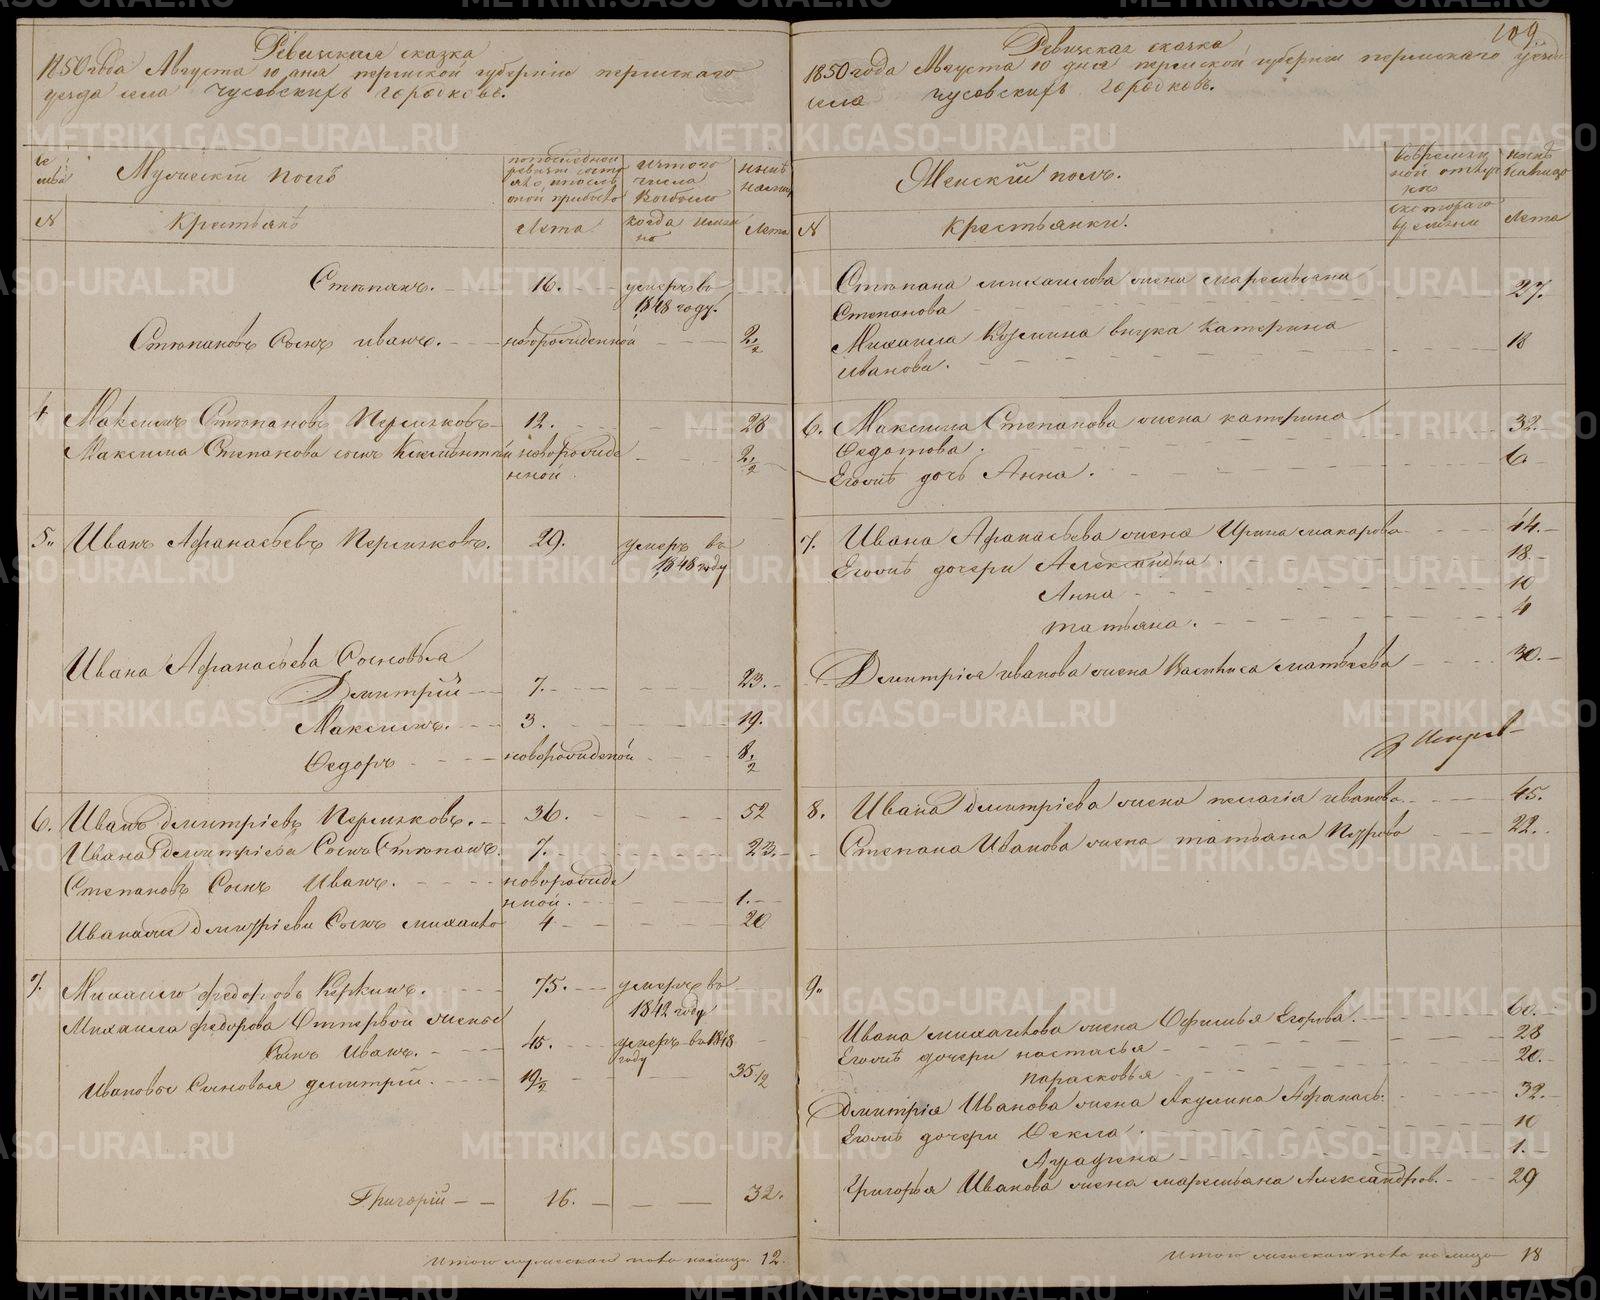 Ревизская сказка
1850 года Августа 10 дня пермской губернiи пермскаго
уезда села Чусовскихъ городковъ.
Мужескiй полъ
по последней
ревизiи состо
яло и после
оной прибыло
изъ того
числа
выбыло
ныне
налицо
N
Крестьянъ
Лета
когда имян
но
Лета
Степанъ. 16. умеръ въ
1848 году.
Степановъ Сынъ иванъ. новорожденной 2 1/2
4 Максимъ Степановъ Пермяковъ 12. 28
Максима Степанова сынъ Климентiй новорожде
нной. 2 1/2
5. Иванъ Афанасьевъ Пермяковъ. 29. умеръ въ
1848 году
Ивана Афанасьева Сыновья
Дмитрiй 7. 23.
Максимъ. 3. 19.
Федоръ новорожденой 8 1/2
6. Иванъ дмитрiевъ Пермяковъ. 36. 52
Ивана дмитрiева Сынъ Степанъ. 7. 23.
Степановъ Сынъ Иванъ. новорожде
нной. 1.
Ивана же дмитрiева Сынъ михаило 4 20
7. Михаило федоровъ Керкинъ. 75. умеръ въ
1842 году
Михаила федорова Отпервой жены
Сынъ Иванъ. 45. умеръ въ 1848
году
Ивановы Сыновья дмитрiй. 19 1/2 35 1/2
Григорiй 16. 32.
Итого мужескаго пола налицо. 12.
109
Ревизская сказка
1850 года Августа 10 дня пермской губернiи пермскаго уезда
села чусовскихъ городковъ.
Женскiй полъ.
во времян
ной отлуч
ке
ныне
налицо
N
Крестьянки.
съ котораго
времяни
Лета
Степана михаилова жена маремьяна
Степанова 27.
Михаила Козмина внука Катерина
Иванова. 18
6. Максима Степанова жена катерина
Федотова. 32.
Егоже дочь Анна. 6
7. Ивана Афанасьева жена Ирина макарова 44.
Егоже дочери Александра. 18
Анна 10
татьяна. 4
Дмитрiя иванова жена Васииса матвеева 30.
8. Ивана дмитрiева жена пелагiя иванова 45.
Степана Иванова жена татьана Петрова 22.
9.
Ивана михаилова жена Офимья Егорова. 60.
Егоже дочери настасья 28
парасковья 20.
Дмитрiя Иванова жена Акулина Афанась. 32.
Егоже дочери Фекла. 10
Аграфена 1.
Григорья Иванова жена маремьана Александров. 29
Итого женскаго пола налицо 18
METRIKI.GASO-URAL.RU